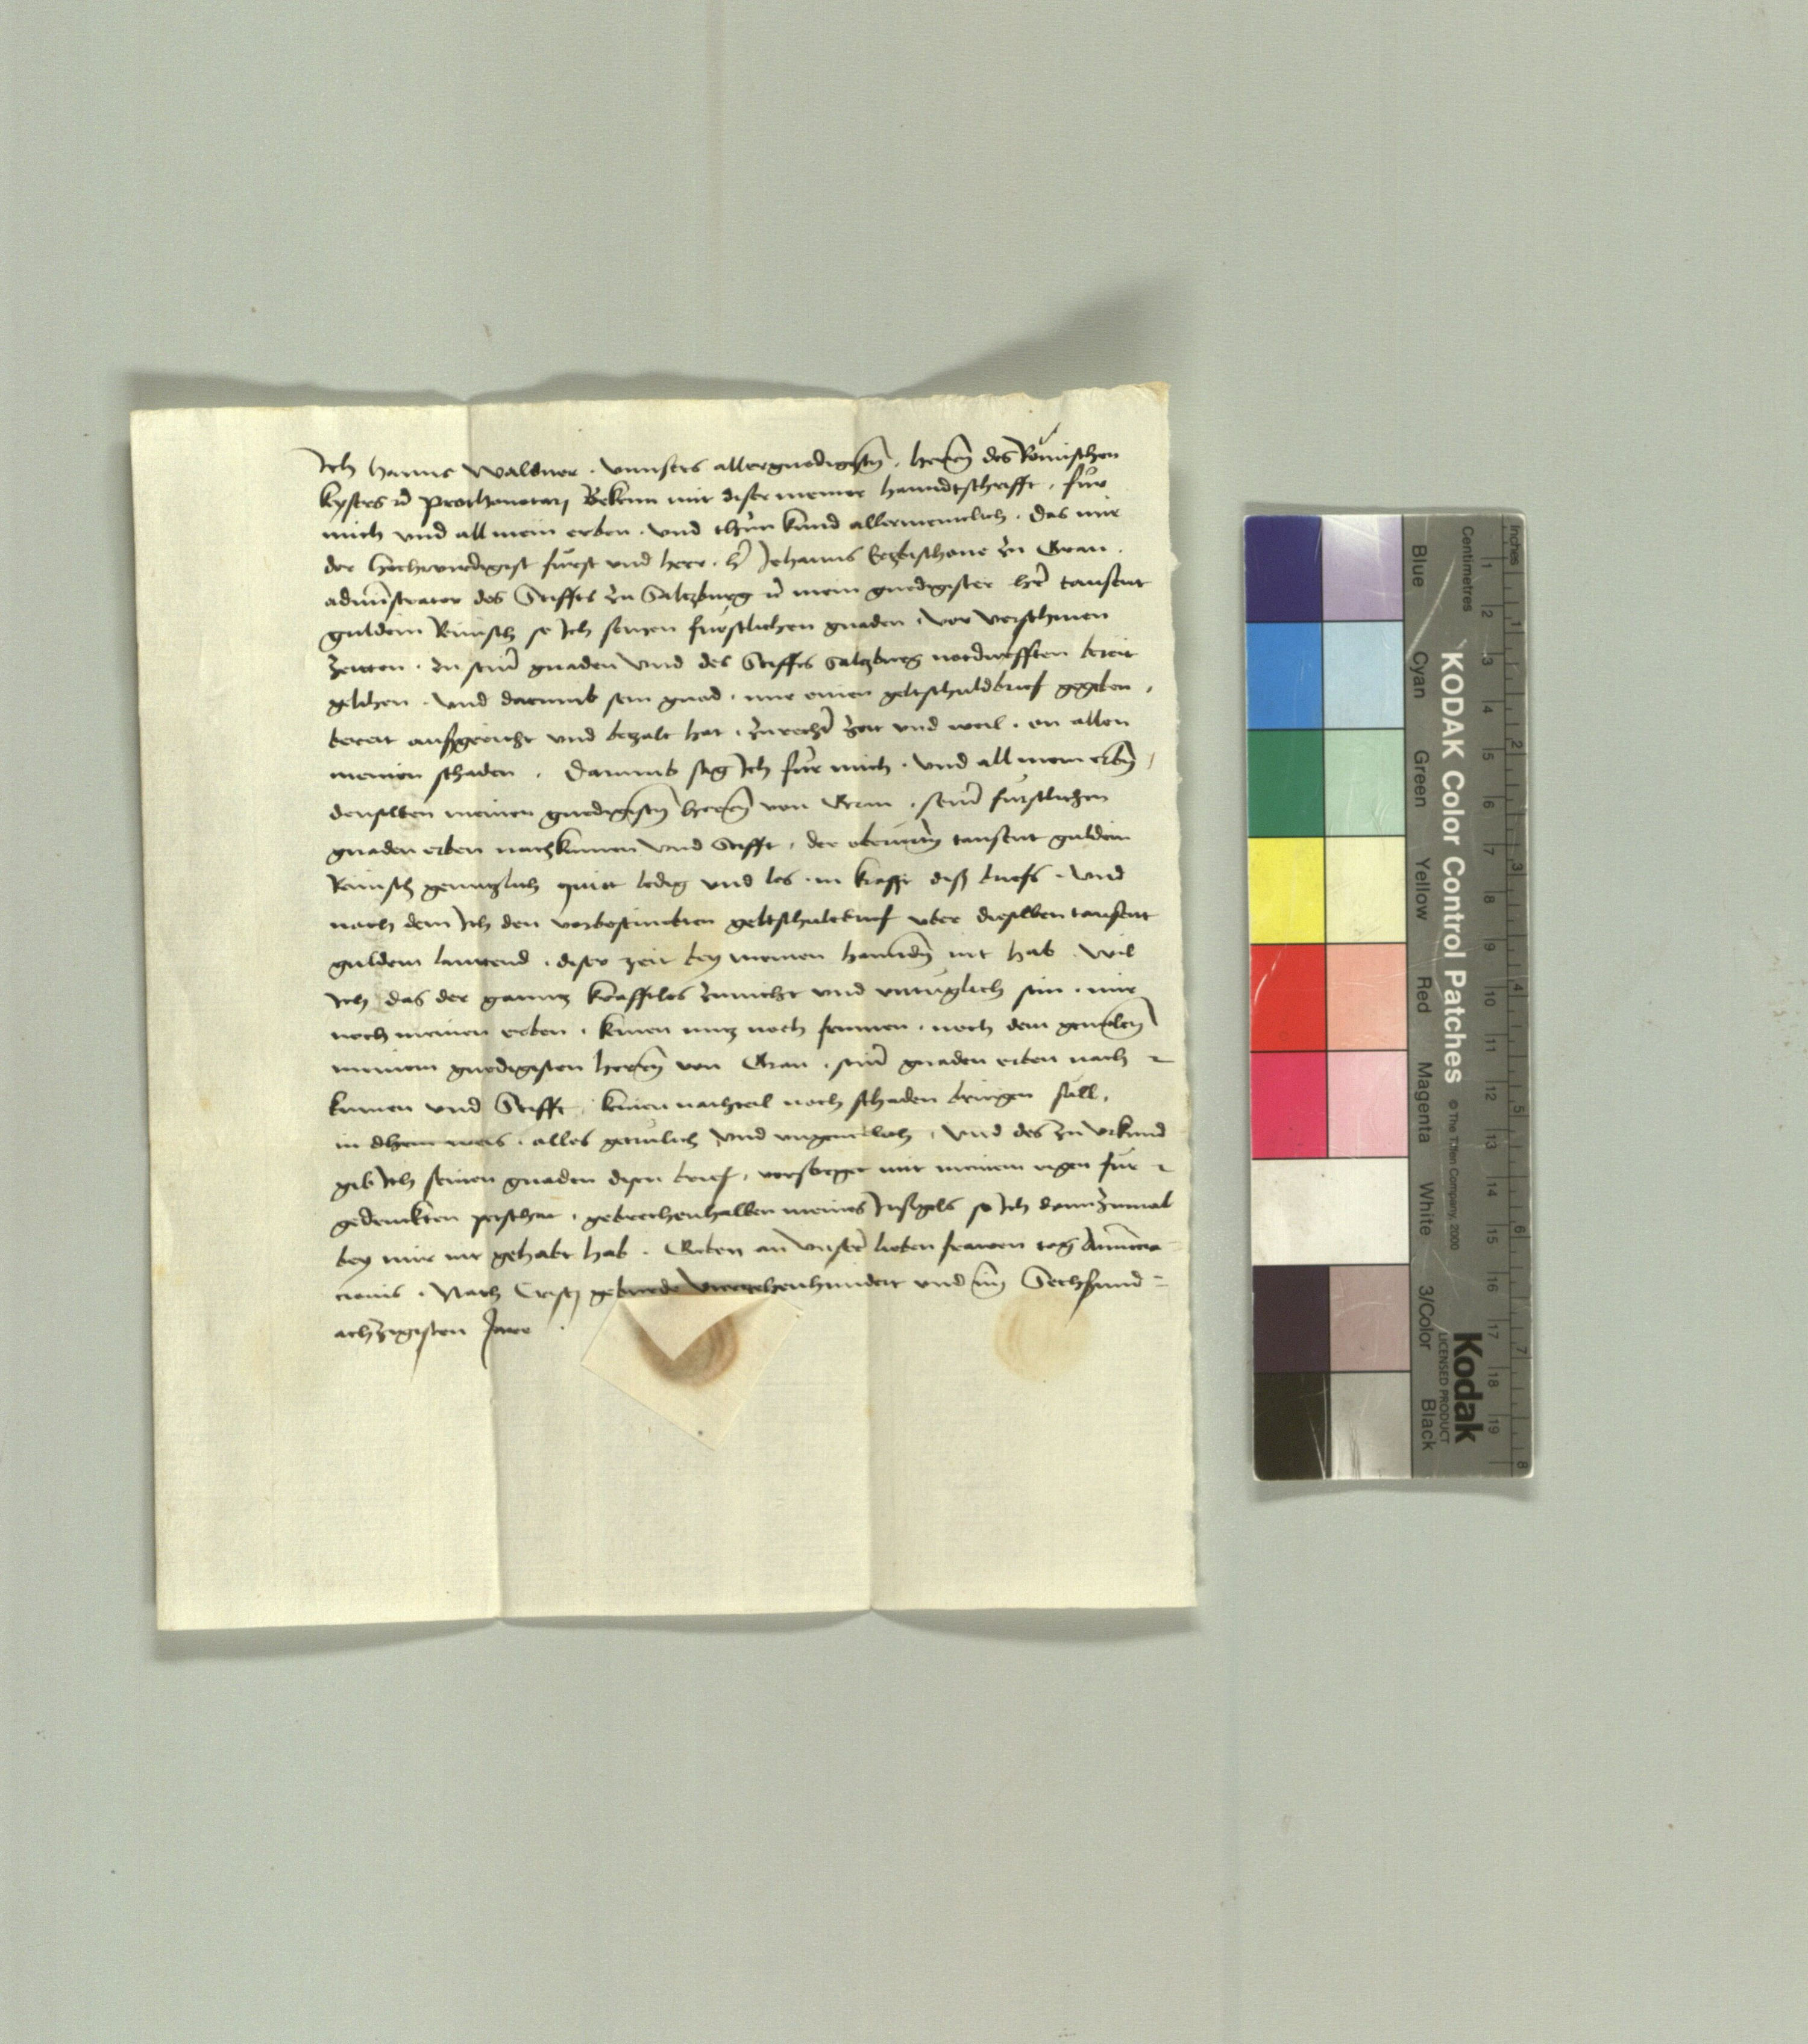 Ich Hanns Waldner . unnsers allergnedigisten . herren des Römischen
keysers etc Prothonotari Bekenn mit diser meiner hanndtschrifft . für
mich und all mein erben . und thün kund allermenclich . das mir
der Hochwirdigist fürst und herr . her Johanns Ertzbischove zu Gran .
administrator des Stiffts zu Saltzburg etc mein gnedigister her tausent
guldein Reinisch so Ich seinen fürstlichen gnaden . vor verschinen
zeitten . zu seiner gnaden und des Stiffts Saltzburg notdurfften bereit
gelihen . und darumb sein gnad . mir einen geltschuldbrief gegeben ,
bereit aussgericht und betzalt hat . zu rechter zeit und weil . on allen
meinen schaden . Darumb sag Ich für mich . und all mein erben ,
denselben meinen gnedigisten herren von Gran . seiner fürstlichen
gnaden erben nachkumen und Stifft . der obemelten tausent guldein
Reinisch genntzlich quitt ledig und los . in krafft diss briefs . und
nach dem Ich den vorbestimbten geltschultbrief uber dieselben tausent
guldein lauttend . diser zeit bey meinen hannden nit hab . wil
Ich das der ganntz krafftlos zunicht und untuglich sein . mir
noch meinen erben . keinen nutz noch frumen . noch dem gemelten
meinem gnedigisten herren von Gran . seiner gnaden erben nach
kumen und Stifft keinen nachteil noch schaden bringen süll ,
in dhein weis . alles getrulich und ungeverlich . und des zu urkund
gib Ich seinen gnaden disen brief , versorget mit meinem eigen für
gedruckten petschat . gebrechenhalben meines Insigels so Ich dannzumal
bey mir nit gehabt hab . Geben an unser lieben frawen tag Annuncia=
cionis . Nach Cristi geburde vierzehenhundert und im Sechsund=
achtzigisten Jare .
Inches
Centimetres
KODAK Color Control Patches
© The Tiffen Company, 2000
Kodak
LICENSED PRODUCT
Blue
Cyan
Green
Yellow
Red
Magenta
White
3/Color
Black
1 2 3 4 5 6 7 8 9 10 11 12 13 14 15 16 17 18 19
1 2 3 4 5 6 7 8